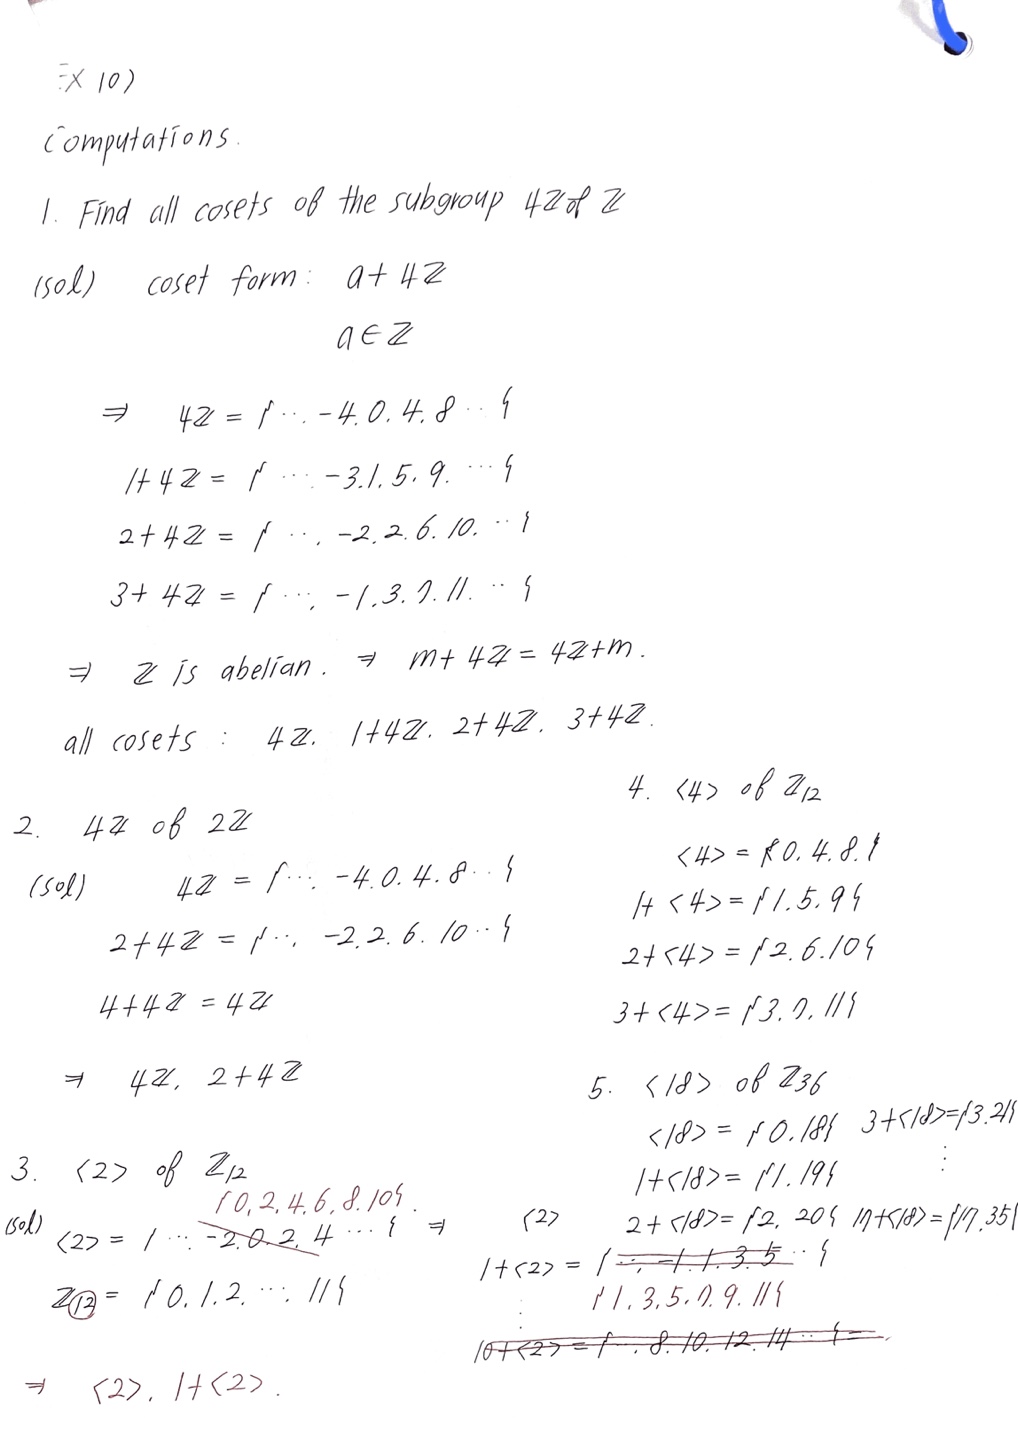 Ex 10)
Computations.
1. Find all cosets of the subgroup 4ℤ of ℤ
(sol) coset form: a+4ℤ
a∈ℤ
⇒ 4ℤ = {…. -4. 0. 4. 8 …}
1+4ℤ = {…. -3. 1. 5. 9. …}
2+4ℤ = {…. -2. 2. 6. 10. …}
3+4ℤ = {…. -1. 3. 7. 11. …}
⇒ ℤ is abelian. ⇒ m+4ℤ = 4ℤ+m.
all cosets : 4ℤ. 1+4ℤ. 2+4ℤ. 3+4ℤ.
2. 4ℤ of 2ℤ
(sol) 4ℤ = {…. -4. 0. 4. 8 …}
2+4ℤ = {…. -2. 2. 6. 10 …}
4+4ℤ = 4ℤ
⇒ 4ℤ. 2+4ℤ
3. <2> of ℤ12
{0, 2, 4, 6, 8. 10}.
(sol) <2> = {…. -2. 0. 2. 4 …} ⇒
ℤ12 = {0. 1. 2. …. 11}
<2>
1+<2> = {…. -1. 1. 3. 5 …}
{1. 3. 5. 7. 9. 11}
⋮
10+<2> = {…. 8. 10. 12. 14 …} =
⇒ <2>. 1+<2>.
4. <4> of ℤ12
<4> = {0. 4. 8.}
1+<4> = {1. 5. 9}
2+<4> = {2. 6. 10}
3+<4> = {3. 7. 11}
5. <18> of ℤ36
<18> = {0. 18} 3+<18>={3. 21}
1+<18> = {1. 19} ⋮
2+<18> = {2. 20} 17+<18>={17. 35}